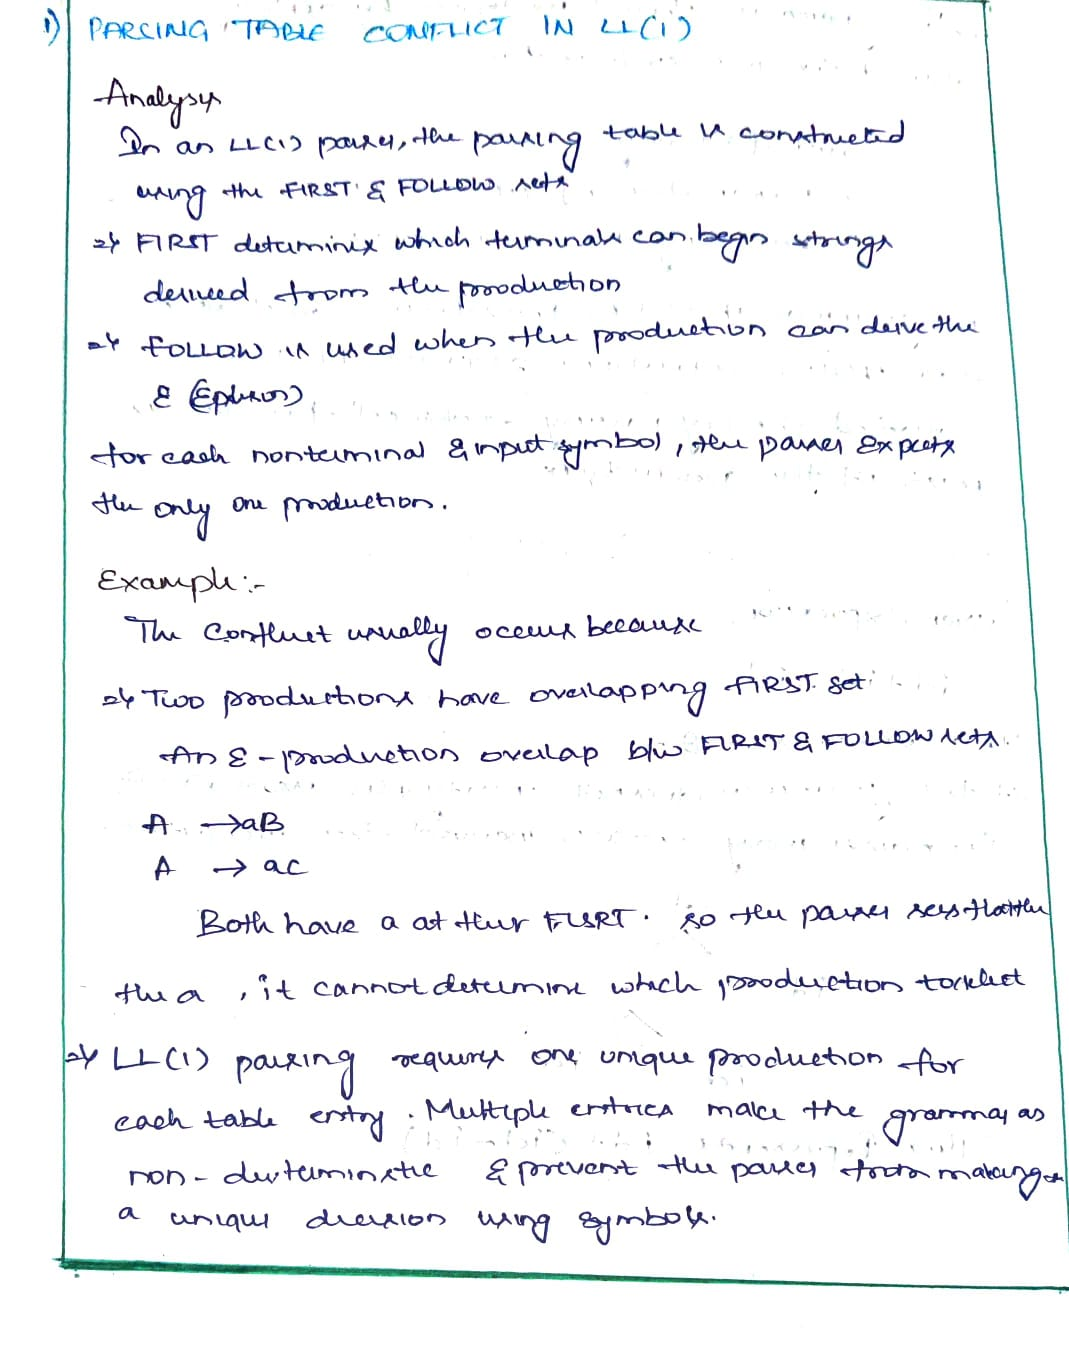 1) PARSING TABLE CONFLICT IN LL(1)
Analysis
In an LL(1) parser, the parsing table is constructed
using the FIRST & FOLLOW sets
=> FIRST determinix which terminals can begin strings
derived from the production
=> FOLLOW is used when the production can derve the
ε (Epsilon)
for each nonterminal & input symbol, the parser expects
the only one production.
Example :-
The Conflict usually occurs because
=> Two productions have overlapping FIRST set
An ε - production overlap b/w FIRST & FOLLOW sets.
A → aB
A → ac
Both have a at their FISRT. so the parser sees that the
the a, it cannot determine which production to select
=> LL(1) parsing requires one unique production for
each table entry. Multiple entries make the grammar as
non-deterministic & prevent the parser from making
a unique decision using symbols.